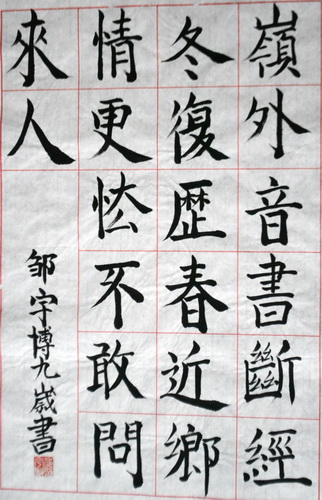 嶺外音書斷經
冬復歷春近鄉
情更怯不敢問
來人
邹宇博九歲書